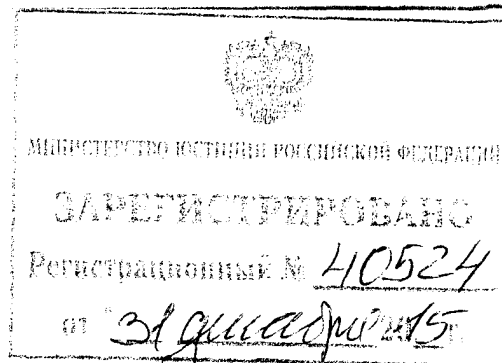 МИНИСТЕРСТВО ЮСТИЦИИ РОССИЙСКОЙ ФЕДЕРАЦИИ
ЗАРЕГИСТРИРОВАНО
Регистрационный № 40524
от "31 декабря 2015